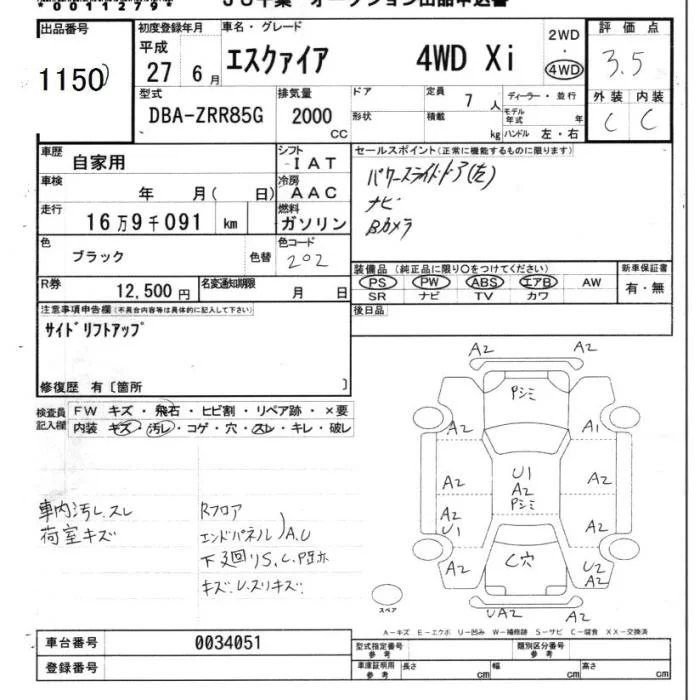 00112794
JU千葉 オークション出品申込書
出品番号
1150
初度登録年月
平成
27 6月
車名・グレード
エスクァイア 4WD Xi
2WD
・
4WD
評価点
3.5
外装 内装
C C
型式
DBA-ZRR85G
排気量
2000
CC
ドア
形状
定員
7人
積載
kg
ディーラー・並行
モデル年式 年
ハンドル 左・右
車歴
自家用
シフト
IAT
車検
年 月( 日)
冷房
AAC
走行
16万9千091 km
燃料
ガソリン
色
ブラック
色替
色コード
202
R券
12,500円
名変通知期限
月 日
セールスポイント(正常に機能するものに限ります)
パワースライドドア(左)
ナビ
Bカメラ
装備品(純正品に限り○をつけてください)
PS PW ABS エアB AW
SR ナビ TV カワ
新車保証書
有・無
後日品
注意事項申告欄(不具合内容等は具体的に記入して下さい)
サイドリフトアップ
修復歴 有〔箇所 〕
検査員
記入欄
FW キズ・飛石・ヒビ割・リペア跡・×要
内装 キズ・汚レ・コゲ・穴・スレ・キレ・破レ
車内汚レ、スレ
荷室キズ
Rフロア
エンドパネル)A.U
下廻りS、C、P
キズ、U、スリキズ
A2 A2
Pシミ
A2 A1
U1
A2
Pシミ
A2 A2
A2
U1
A2
C穴
A2
U2
A2
UA2 A2
スペア
A－キズ E－エクボ U－凹み W－補修跡 S－サビ C－腐食 XX－交換済
車台番号
0034051
登録番号
型式指定番号
参考
類別区分番号
参考
車庫証明用
参考
長さ cm 幅 cm 高さ cm